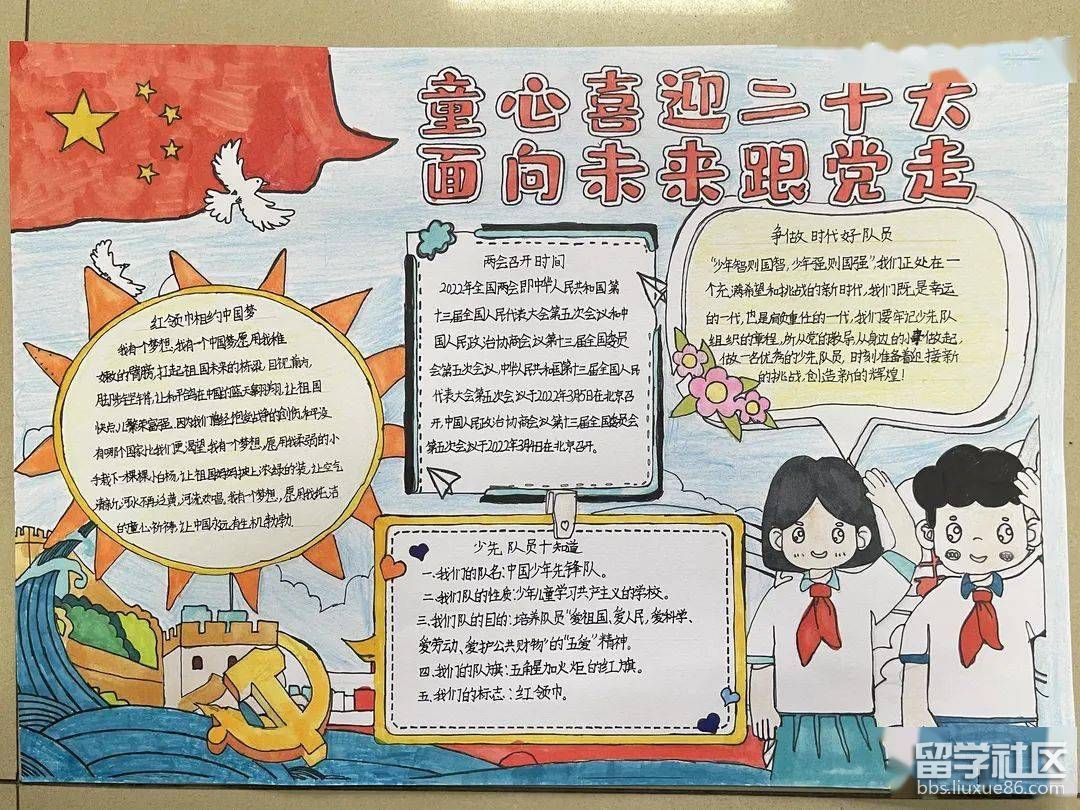 童心喜迎二十大
面向未来跟党走
红领巾相约中国梦
我有个梦想,我有一个中国梦,愿用我稚
嫩的臂膀,扛起祖国未来的栋梁,目视前方,
让和平鸽在中国的蓝天翱翔,让祖国
快点儿繁荣富强,因为我们曾经饱受战争的创伤和平没
有哪个国家比我们更渴望,我有个梦想,愿用我柔弱的小
手栽下一棵棵小白杨,让祖国妈妈披上浓绿的装,让空气
清新,河水不再泛黄,河流欢唱,我有个梦想,愿用我纯洁
的童心祈祷,让中国永远有生机勃勃.
两会召开时间
2022年全国两会即中华人民共和国第
十三届全国人民代表大会第五次会议和中
国人民政治协商会议第十三届全国委员
会第五次会议,中华人民共和国第十三届全国人民
代表大会第五次会议于2022年3月5日在北京召
开,中国人民政治协商会议第十三届全国委员会
第五次会议于2022年3月4日在北京召开.
争做时代好队员
“少年智则国智,少年强则国强”,我们正处在一
个充满希望和挑战的新时代,我们既是幸运
的一代,也是肩负重任的一代,我们要牢记少先队
组织的章程,听从党的教导,从身边的小事做起,
做一名优秀的少先队员,时刻准备着迎接新
的挑战,创造新的辉煌!
少先队员十知道
一.我们的队名:中国少年先锋队。
二.我们队的性质:少年儿童学习共产主义的学校。
三.我们队的目的:培养队员“爱祖国、爱人民,爱科学、
爱劳动、爱护公共财物”的“五爱”精神。
四.我们的队旗:五角星加火炬的红旗。
五.我们的标志:红领巾。
留学社区
bbs.liuxue86.com